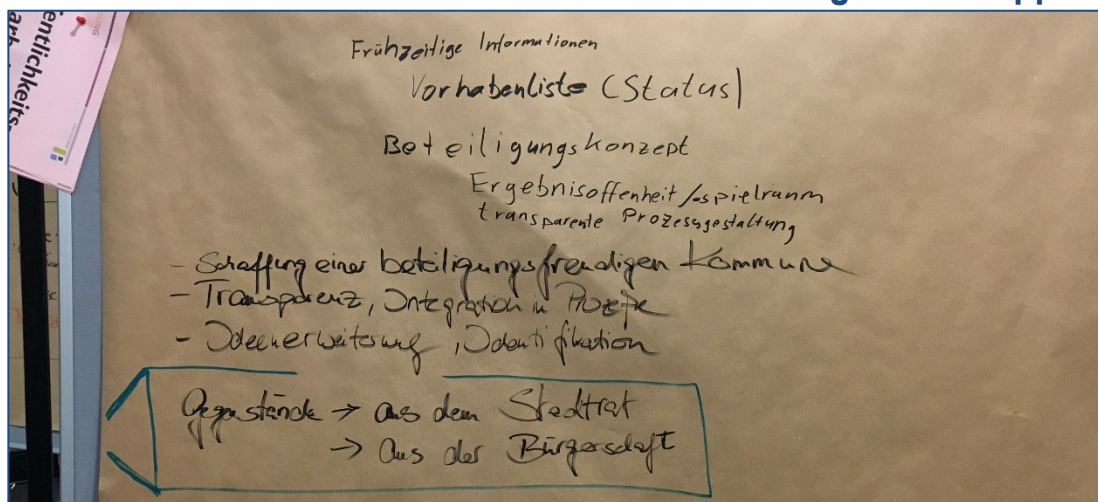 entlichkeits-
Frühzeitige Informationen
Vorhabenliste (Status)
Beteiligungskonzept
Ergebnisoffenheit/-spielraum
transparente Prozessgestaltung
- Schaffung einer beteiligungsfreudigen Kommune
- Transparenz, Integration in Prozeße
- Ideenerweiterung, Identifikation
Gegenstände → aus dem Stadtrat
→ aus der Bürgerschaft